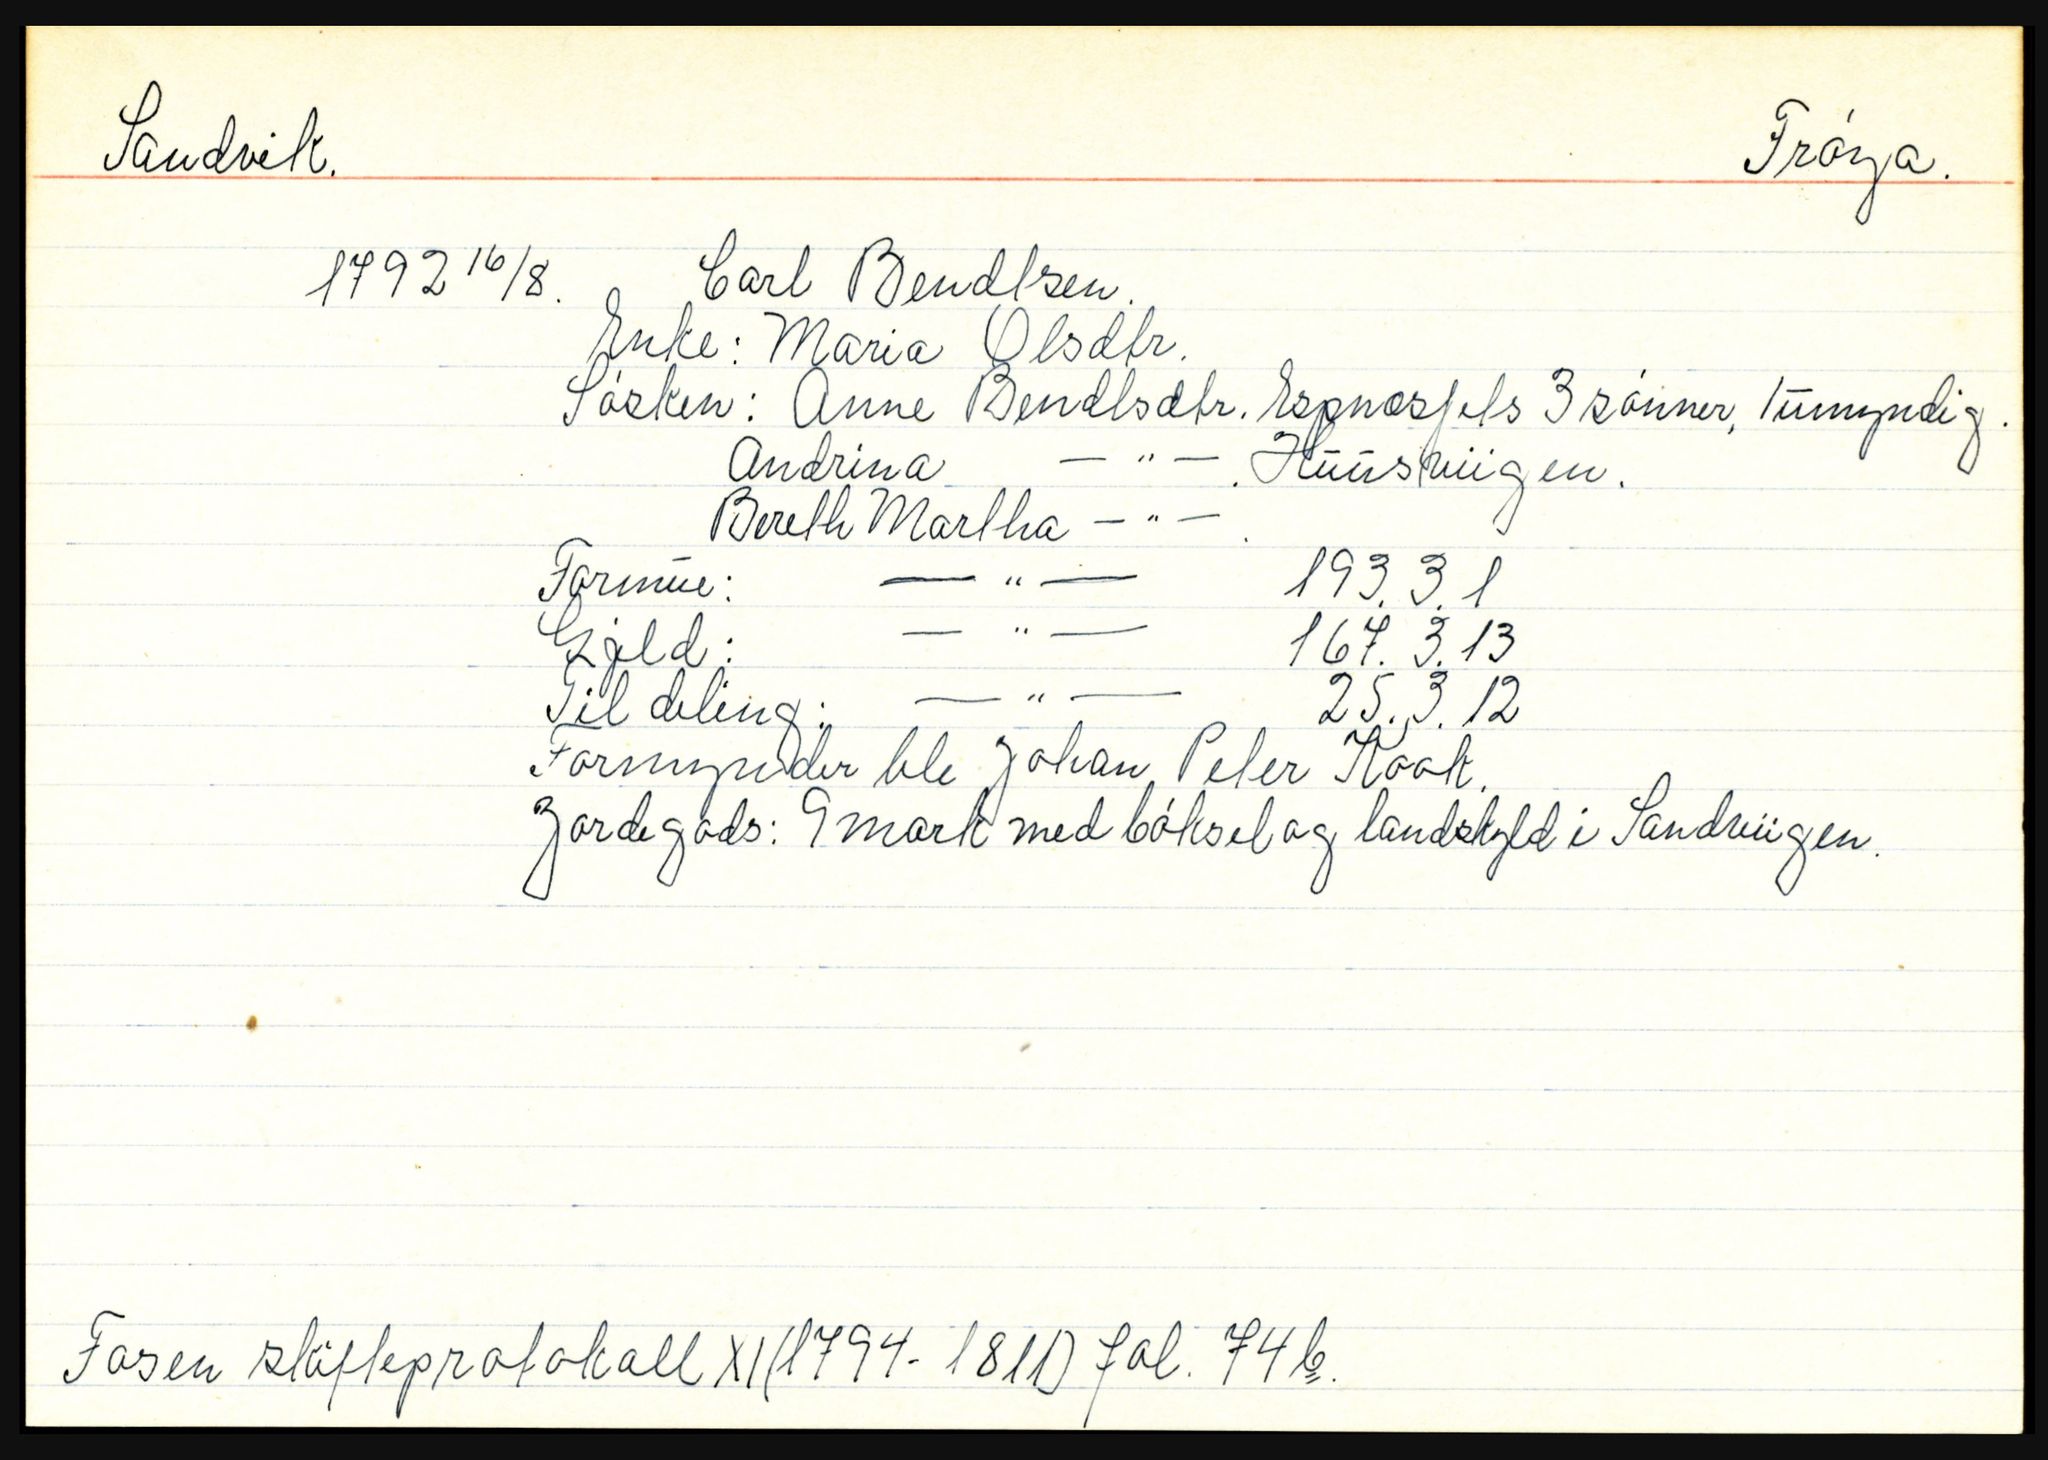 Sandvik. Fröya.
1792 16/8. Carl Bendtsen.
Enke: Maria Olsdtr.
Sösken: Anne Bendtsdtr. Espnæsfets 3 sönner, 1 umyndig.
Andrina — " — . Huusviigen.
Bereth Martha — " — .
Formue: — " — 193. 3. 1
Gjeld: — " — 167. 3. 13
Til deling: — " — 25. 3. 12
Formynder ble Johan Peter Kook.
Jordegods: 9 mark med böksel og landskyld i Sandviigen.
Fosen skifteprotokoll XI (1794-1811) fol. 74b.